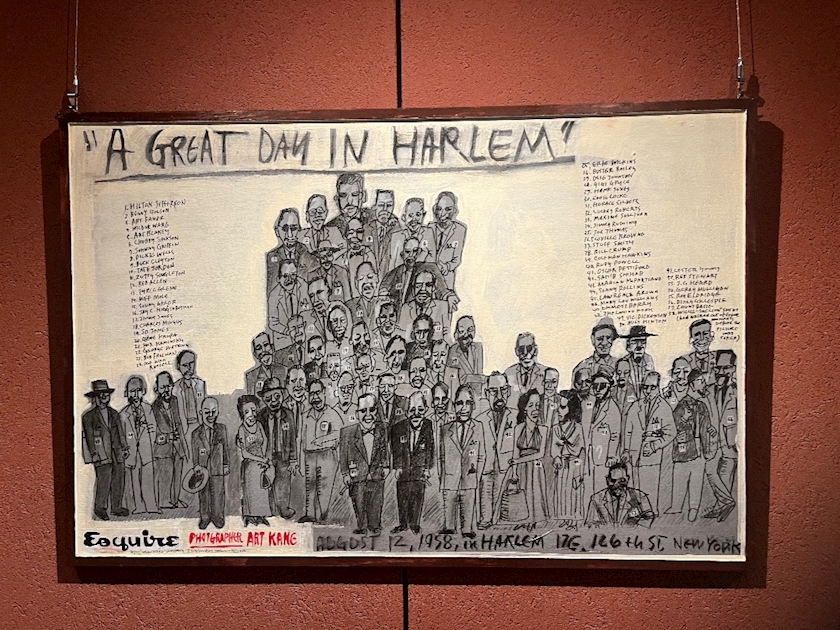 "A GREAT DAY IN HARLEM"
1. HILTON JEFFERSON
2. BENNY GOLSON
3. ART FARMER
4. WILBUR WARE
5. ART BLAKEY
6. CHUBBY JACKSON
7. JOHNNY GRIFFIN
8. DICKIE WELLS
9. BUCK CLAYTON
10. TAFT JORDAN
11. ZUTTY SINGLETON
12. RED ALLEN
13. TYREE GLENN
18. CHARLES MINGUS
19. JO JONES
20. GENE KRUPA
21. MAX KAMINSKY
22. GEORGE WETTLING
23. BUD FREEMAN
RUSSELL
26. BUSTER BAILEY
28. GIGI GRYCE
29. HANK JONES
31. HORACE SILVER
32. LUCKY ROBERTS
33. MAXINE SULLIVAN
35. JOE THOMAS
37. STUFF SMITH
38. BILL CRUMP
39. COLEMAN HAWKINS
40. RUDY POWELL
41. OSCAR PETTIFORD
42. SAHIB SHIHAB
43. MARIAN McPARTLAND
44. SONNY ROLLINS
45. LAWRENCE BROWN
46. MARY LOU WILLIAMS
47. EMMETT BERRY
48. THELONIOUS MONK
49. VIC DICKENSON
50. MILT HINTON
51. LESTER YOUNG
52. REX STEWART
53. J.C. HEARD
54. GERRY MULLIGAN
55. ROY ELDRIDGE
56. DIZZY GILLESPIE
57. COUNT BASIE
Esquire
PHOTOGRAPHER ART KANE
AUGUST 12, 1958, in HARLEM 17E, 126th ST, NEW YORK